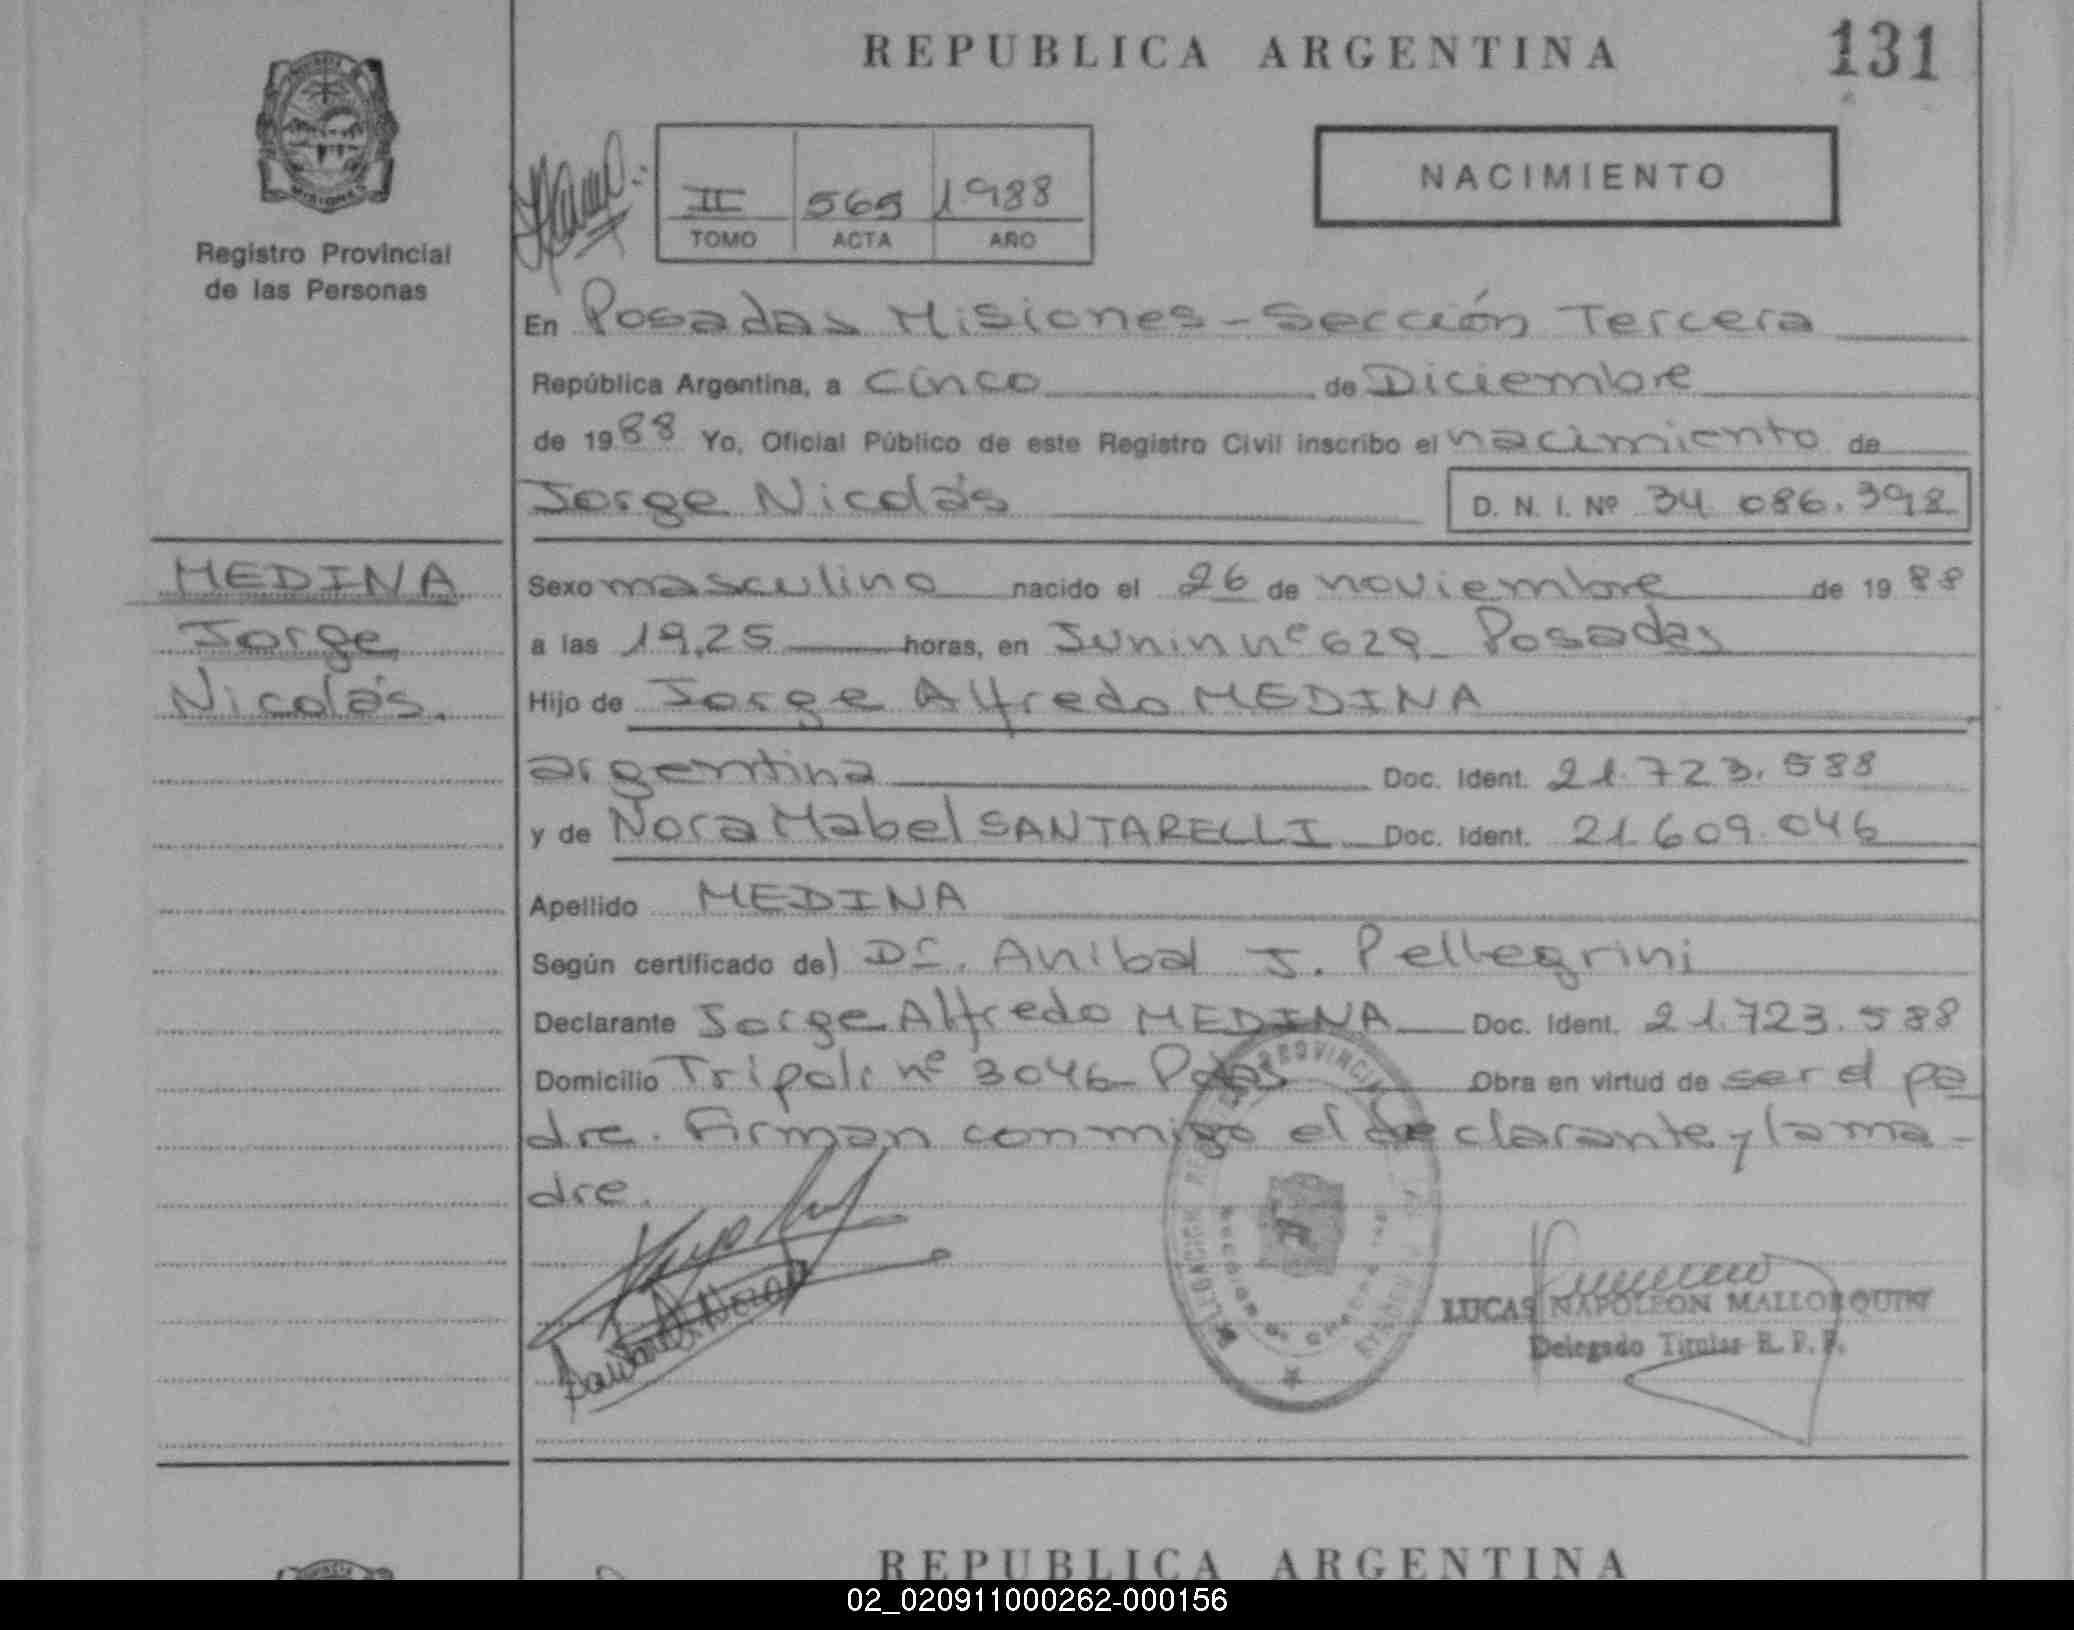 REPUBLICA ARGENTINA
131
NACIMIENTO
II 565 1988
TOMO ACTA AÑO
Registro Provincial
de las Personas
En Posadas Misiones - Sección Tercera
República Argentina, a cinco de Diciembre
de 1988 Yo, Oficial Público de este Registro Civil inscribo el nacimiento de
Jorge Nicolás D. N. I. Nº 34.086.392
MEDINA
Jorge
Nicolás.
Sexo masculino nacido el 26 de noviembre de 1988
a las 19,25 horas, en Junin nº 629 - Posadas
Hijo de Jorge Alfredo MEDINA
argentina Doc. Ident. 21.723.588
y de Nora Mabel SANTARELLI Doc. Ident. 21.609.046
Apellido MEDINA
Según certificado del Dr. Anibal J. Pellegrini
Declarante Jorge Alfredo MEDINA Doc. Ident. 21.723.588
Domicilio Tripoli nº 3046 - Pdas Obra en virtud de ser el pa
dre. Firman conmigo el declarante y la ma -
dre.
LUCAS NAPOLEON MALLORQUIN
Delegado Titular R. P. P.
REPUBLICA ARGENTINA
02_020911000262-000156